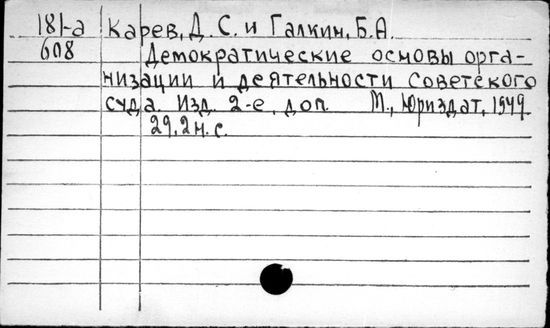 181-а Карев, Д. С. и Галкин, Б. А.
608 Демократические основы орга-
низации и деятельности Советского
суда. Изд. 2-е, доп. М., Юриздат, 1949.
29, 2 н. с.